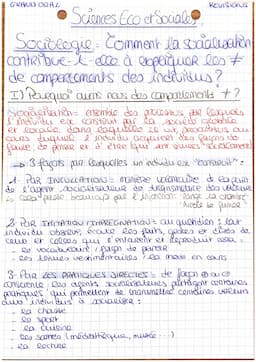 GRAND ORAL
Revisions
Sciences Eco et Sociales
Sociologie : Comment la socialisation
contribue-t-elle à expliquer les ≠
de comportements des individus ?
I) Pourquoi avons nous des comportements ≠ ?
Socialisation = ensemble des processus par lesquels
l'individu est construit par la société globale
et locale dans laquelle il vit, processus au
cours duquel l'individu acquiert des façons de
faire, de penser et d'être qui sont situées socialement
→ 3 façons par lesquelles un individu est "construit" :
1- Par INCULCATION = manière volontaire de la part
de l'agent socialisateur de transmettre des valeurs
↳ cela passe beaucoup par l'
2- Par IMITATION / IMPREGNATION = au quotidien ; tout
individu observe, écoute les faits, gestes et dires de
ceux et celles qui l'entourent et reproduit
- le vocabulaire / façon de parler
- les tenues vestimentaires / la mise en cours
3- Par LES PRATIQUES DIRECTES = de façon
concrète les agents socialisateurs partagent certaines
pratiques qui permettent de transmettre certaines valeurs
aux individus à socialiser :
- la chasse
- le sport
- la cuisine
- les sorties (médiathèque, musée ...)
- la lecture